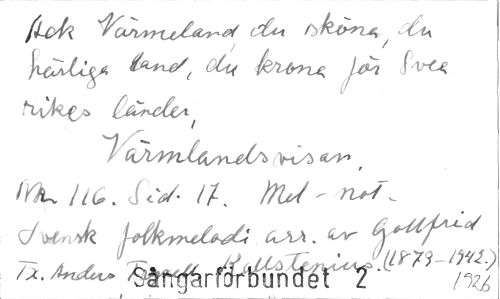 Ack Värmeland, du sköna, du
härliga land, du krona för Svea
rikes länder,
Värmlandsvisan,
Nr 116. Sid. 17. Mel-not-
Svensk folkmelodi arr. av Gottfrid
Tx. Anders Fryxell Kallstenius (1873-1942.)
Sångarförbundet 2
1926